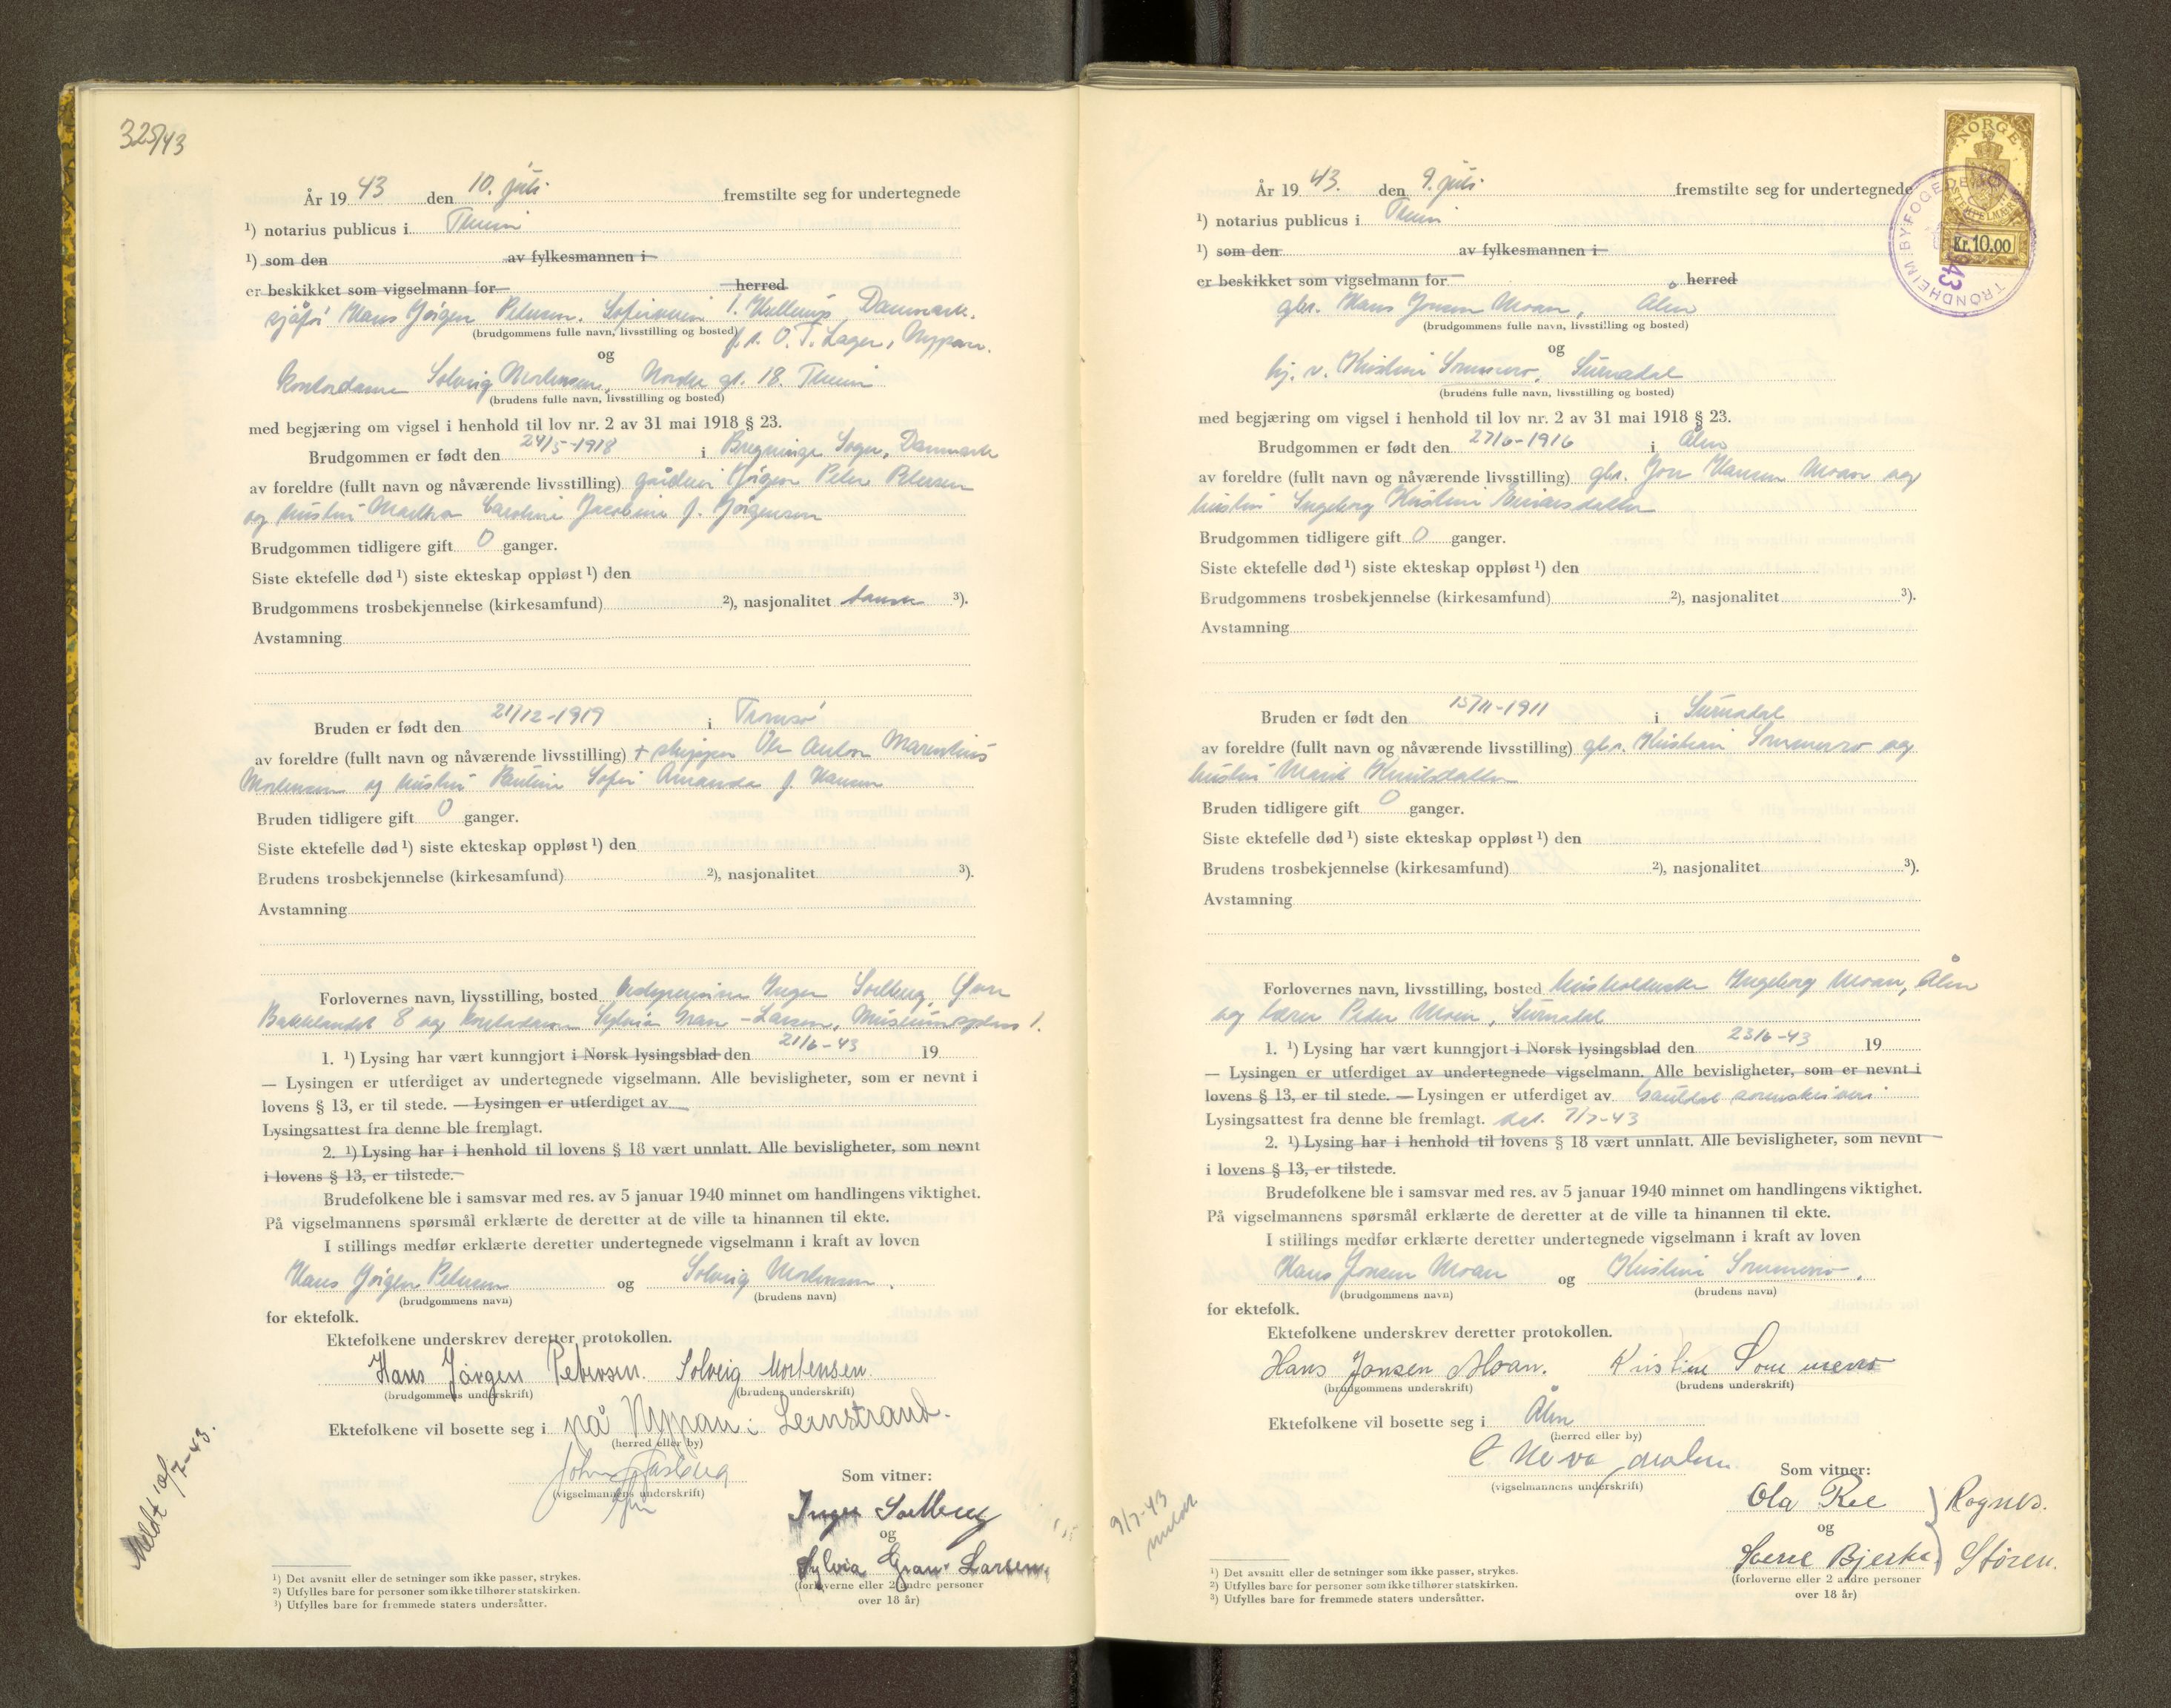 325/43
År 19 43 den 10. juli fremstilte seg for undertegnede
¹) notarius publicus i Thum
¹) som den av fylkesmannen i
er beskikket som vigselmann for herred
sjåfør Hans Jørgen Petersen. Danmark.
(brudgommens fulle navn, livsstilling og bosted) f.t. O.T. Lager, Nypan.
og
kontordame Solveig Mortensen, Nordre gt. 18. Thum
(brudens fulle navn, livsstilling og bosted)
med begjæring om vigsel i henhold til lov nr. 2 av 31 mai 1918 § 23.
Brudgommen er født den 24/5-1918 i Bregninge Sogn, Danmark
av foreldre (fullt navn og nåværende livsstilling) gårdeier Jørgen Peter Petersen
og hustru Martha Caroline Jacobine f. Jørgensen
Brudgommen tidligere gift 0 ganger.
Siste ektefelle død ¹) siste ekteskap oppløst ¹) den
Brudgommens trosbekjennelse (kirkesamfund) ²), nasjonalitet dansk ³).
Avstamning
Bruden er født den 21/12-1919 i Tromsø
av foreldre (fullt navn og nåværende livsstilling) + skipper Ole Anton Marentius
Mortensen og hustru Pauline Sofie Amanda f. Hansen
Bruden tidligere gift 0 ganger.
Siste ektefelle død ¹) siste ekteskap oppløst ¹) den
Brudens trosbekjennelse (kirkesamfund) ²), nasjonalitet ³).
Avstamning
Forlovernes navn, livsstilling, bosted Inger Solberg, Øvre
Bakklandet 8 og Sylvia Gran-Larsen, Museumsplass 1.
1. ¹) Lysing har vært kunngjort i Norsk lysingsblad den 21/6-43 19
— Lysingen er utferdiget av undertegnede vigselmann. Alle bevisligheter, som er nevnt i
lovens § 13, er til stede. — Lysingen er utferdiget av
Lysingsattest fra denne ble fremlagt.
2. ¹) Lysing har i henhold til lovens § 18 vært unnlatt. Alle bevisligheter, som nevnt
i lovens § 13, er tilstede.
Brudefolkene ble i samsvar med res. av 5 januar 1940 minnet om handlingens viktighet.
På vigselmannens spørsmål erklærte de deretter at de ville ta hinannen til ekte.
I stillings medfør erklærte deretter undertegnede vigselmann i kraft av loven
Hans Jørgen Petersen og Solveig Mortensen.
(brudgommens navn) (brudens navn)
for ektefolk.
Ektefolkene underskrev deretter protokollen.
Hans Jørgen Petersen. Solveig Mortensen.
(brudgommens underskrift) (brudens underskrift)
Ektefolkene vil bosette seg i på Nypan i Leinstrand.
(herred eller by)
(vigselmannens underskrift)
Som vitner:
Inger Solberg
og
Sylvia Gran-Larsen.
(forloverne eller 2 andre personer
over 18 år)
Meldt 10/7-43.
¹) Det avsnitt eller de setninger som ikke passer, strykes.
²) Utfylles bare for personer som ikke tilhører statskirken.
³) Utfylles bare for fremmede staters undersåtter.
NORGE
STEMPELMERKE
Kr. 10.00
TRONDHEIM BYFOGEDEMB
År 19 43. den 9. juli fremstilte seg for undertegnede
¹) notarius publicus i Thum
¹) som den av fylkesmannen i
er beskikket som vigselmann for herred
gbr. Hans Jonsen Moan, Ålen
(brudgommens fulle navn, livsstilling og bosted)
og
hj. v. Kristine Sommerro, Surnadal
(brudens fulle navn, livsstilling og bosted)
med begjæring om vigsel i henhold til lov nr. 2 av 31 mai 1918 § 23.
Brudgommen er født den 27/6-1916 i Ålen
av foreldre (fullt navn og nåværende livsstilling) gbr. Jon Hansen Moan og
hustru Ingeborg Kristine Einarsdatter
Brudgommen tidligere gift 0 ganger.
Siste ektefelle død ¹) siste ekteskap oppløst ¹) den
Brudgommens trosbekjennelse (kirkesamfund) ²), nasjonalitet ³).
Avstamning
Bruden er født den 15/11-1911 i Surnadal
av foreldre (fullt navn og nåværende livsstilling) gbr. Kristian Sommerro og
hustru Marit Knutsdatter
Bruden tidligere gift 0 ganger.
Siste ektefelle død ¹) siste ekteskap oppløst ¹) den
Brudens trosbekjennelse (kirkesamfund) ²), nasjonalitet ³).
Avstamning
Forlovernes navn, livsstilling, bosted husholderske Ingeborg Moan, Ålen
og lærer Peder Moen, Surnadal
1. ¹) Lysing har vært kunngjort i Norsk lysingsblad den 23/6-43 19
— Lysingen er utferdiget av undertegnede vigselmann. Alle bevisligheter, som er nevnt i
lovens § 13, er til stede. — Lysingen er utferdiget av Gauldal sorenskriveri
Lysingsattest fra denne ble fremlagt. dat. 7/7-43
2. ¹) Lysing har i henhold til lovens § 18 vært unnlatt. Alle bevisligheter, som nevnt
i lovens § 13, er tilstede.
Brudefolkene ble i samsvar med res. av 5 januar 1940 minnet om handlingens viktighet.
På vigselmannens spørsmål erklærte de deretter at de ville ta hinannen til ekte.
I stillings medfør erklærte deretter undertegnede vigselmann i kraft av loven
Hans Jonsen Moan og Kristine Sommerro.
(brudgommens navn) (brudens navn)
for ektefolk.
Ektefolkene underskrev deretter protokollen.
Hans Jonsen Moan. Kristine Sommerro
(brudgommens underskrift) (brudens underskrift)
Ektefolkene vil bosette seg i Ålen
(herred eller by)
(vigselmannens underskrift)
Som vitner:
Ola Ree Rognes.
og
Sverre Bjerke Støren.
(forloverne eller 2 andre personer
over 18 år)
9/7-43
meldt.
¹) Det avsnitt eller de setninger som ikke passer, strykes.
²) Utfylles bare for personer som ikke tilhører statskirken.
³) Utfylles bare for fremmede staters undersåtter.